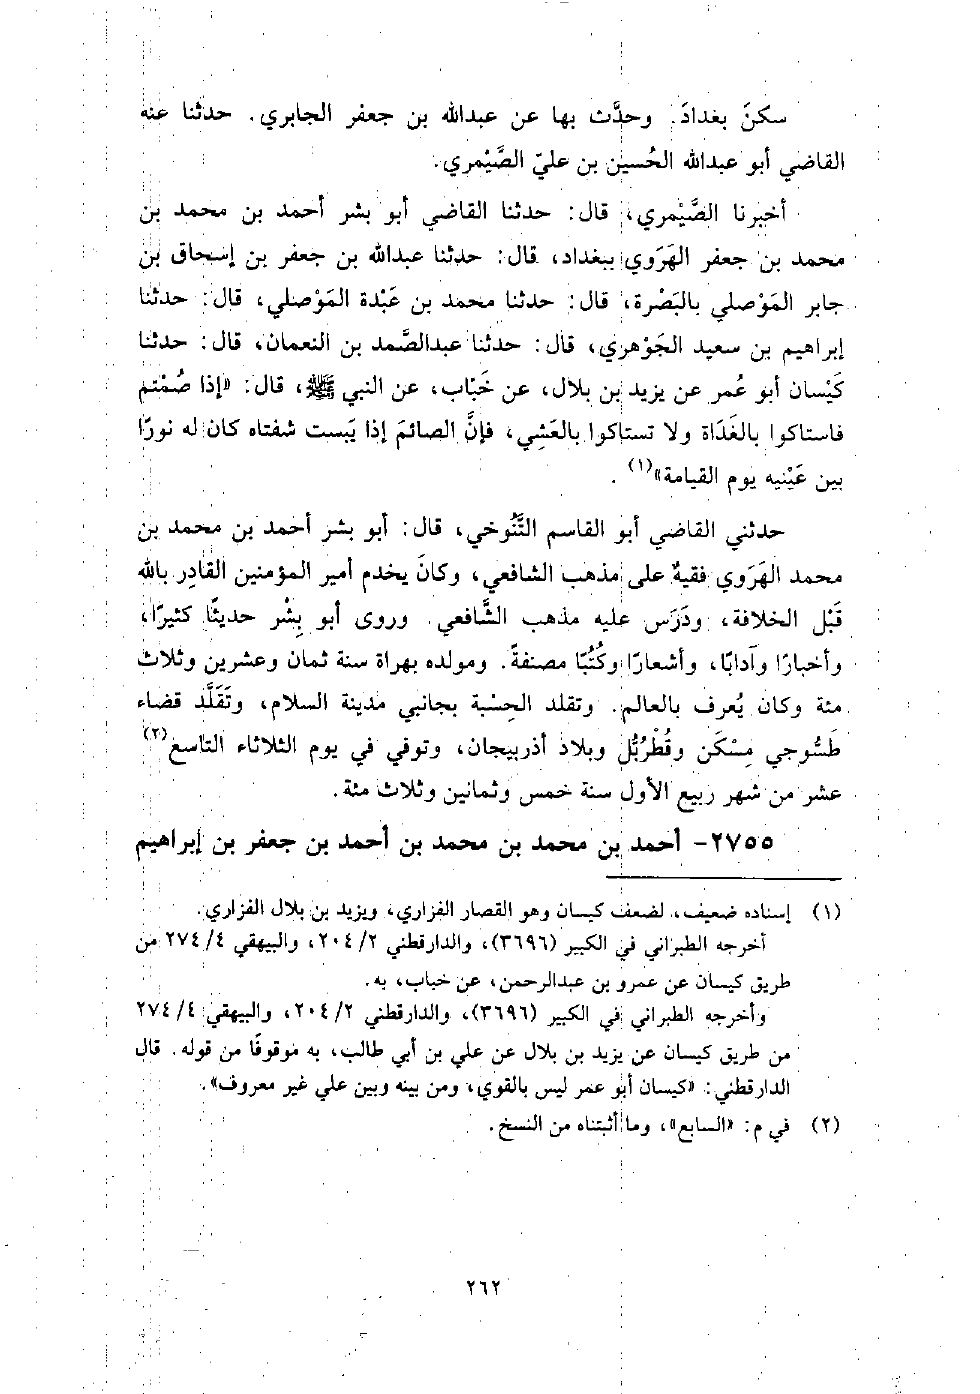 سكنَ بغدادَ. وحدَّث بها عن عبدالله بن جعفر الجابري. حدثنا عنه
القاضي أبو عبدالله الحُسين بن عليّ الصَّيْمري.
أخبرنا الصَّيْمري، قال: حدثنا القاضي أبو بشر أحمد بن محمد بن
محمد بن جعفر الهَرَوي ببغداد، قال: حدثنا عبدالله بن جعفر بن إسحاق بن
جابر المَوْصلي بالبَصْرة، قال: حدثنا محمد بن عَبْدة المَوْصلي، قال: حدثنا
إبراهيم بن سعيد الجَوْهري، قال: حدثنا عبدالصَّمد بن النعمان، قال: حدثنا
كَيْسان أبو عُمر عن يزيد بن بلال، عن خَبّاب، عن النبي ﷺ، قال: «إذا صُمْتم
فاستاكوا بالغَدَاة ولا تستاكوا بالعَشِي، فإنَّ الصائمَ إذا يَبست شفتاه كان له نورًا
بين عَيْنيه يوم القيامة»(١) .
حدثني القاضي أبو القاسم التَّنُوخي، قال: أبو بشر أحمد بن محمد بن
محمد الهَرَوي فقيهٌ على مذهب الشافعي، وكانَ يخدم أمير المؤمنين القادِر بالله
قَبْل الخلافة، ودَرَس عليه مذهب الشَّافعي. وروى أبو بِشْر حديثًا كثيرًا،
وأخبارًا وآدابًا، وأشعارًا وكُتُبًا مصنفةً. ومولده بهراة سنة ثمان وعشرين وثلاث
مئة وكان يُعرف بالعالم. وتقلد الحِسْبة بجانبي مدينة السلام، وتَقَلَّد قضاء
طَسُّوجي مِسْكَن وقُطْرُبُّل وبلاد أذربيجان، وتوفي في يوم الثلاثاء التاسع(٢)
عشر من شهر ربيع الأول سنة خمس وثمانين وثلاث مئة.
٢٧٥٥- أحمد بن محمد بن محمد بن أحمد بن جعفر بن إبراهيم
(١) إسناده ضعيف، لضعف كيسان وهو القصار الفزاري، ويزيد بن بلال الفزاري.
أخرجه الطبراني في الكبير (٣٦٩٦)، والدارقطني ٢/ ٢٠٤، والبيهقي ٤/ ٢٧٤ من
طريق كيسان عن عمرو بن عبدالرحمن، عن خباب، به.
وأخرجه الطبراني في الكبير (٣٦٩٦)، والدارقطني ٢/ ٢٠٤، والبيهقي ٤/ ٢٧٤
من طريق كيسان عن يزيد بن بلال عن علي بن أبي طالب، به موقوفًا من قوله. قال
الدارقطني: «كيسان أبو عمر ليس بالقوي، ومن بينه وبين علي غير معروف».
(٢) في م: «السابع»، وما أثبتناه من النسخ.
٢٦٢